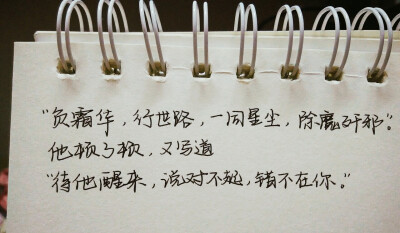 “负霜华，行世路，一同星尘，除魔歼邪”。
他顿了顿，又写道
“待他醒来，说对不起，错不在你。”